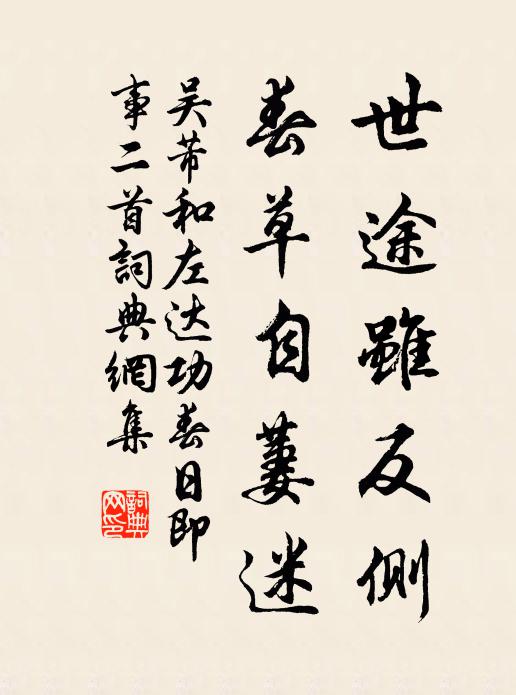 世途雖反側
春草自萋迷
吴芾和左达功春日即
事二首詞典網集
詞典網印